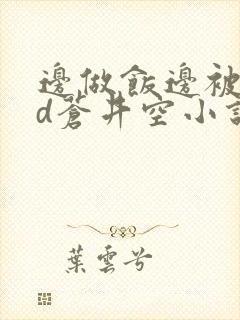 邊做飯邊被
d蒼井空小說
葉雲兮